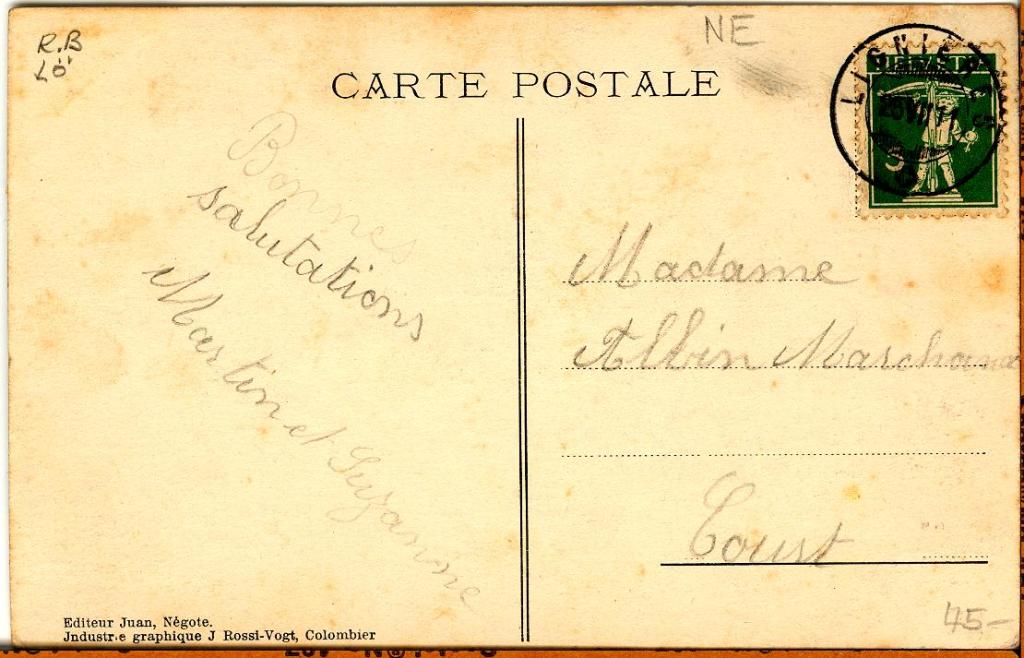 R.B
Lö
NE
CARTE POSTALE
LIGNIÈRES
26 VII 11
5
Bonnes
salutations
Martin et Suzanne
Madame
Albin Marchand
Court
45-
Editeur Juan, Négote.
Jndustrie graphique J Rossi-Vogt, Colombier